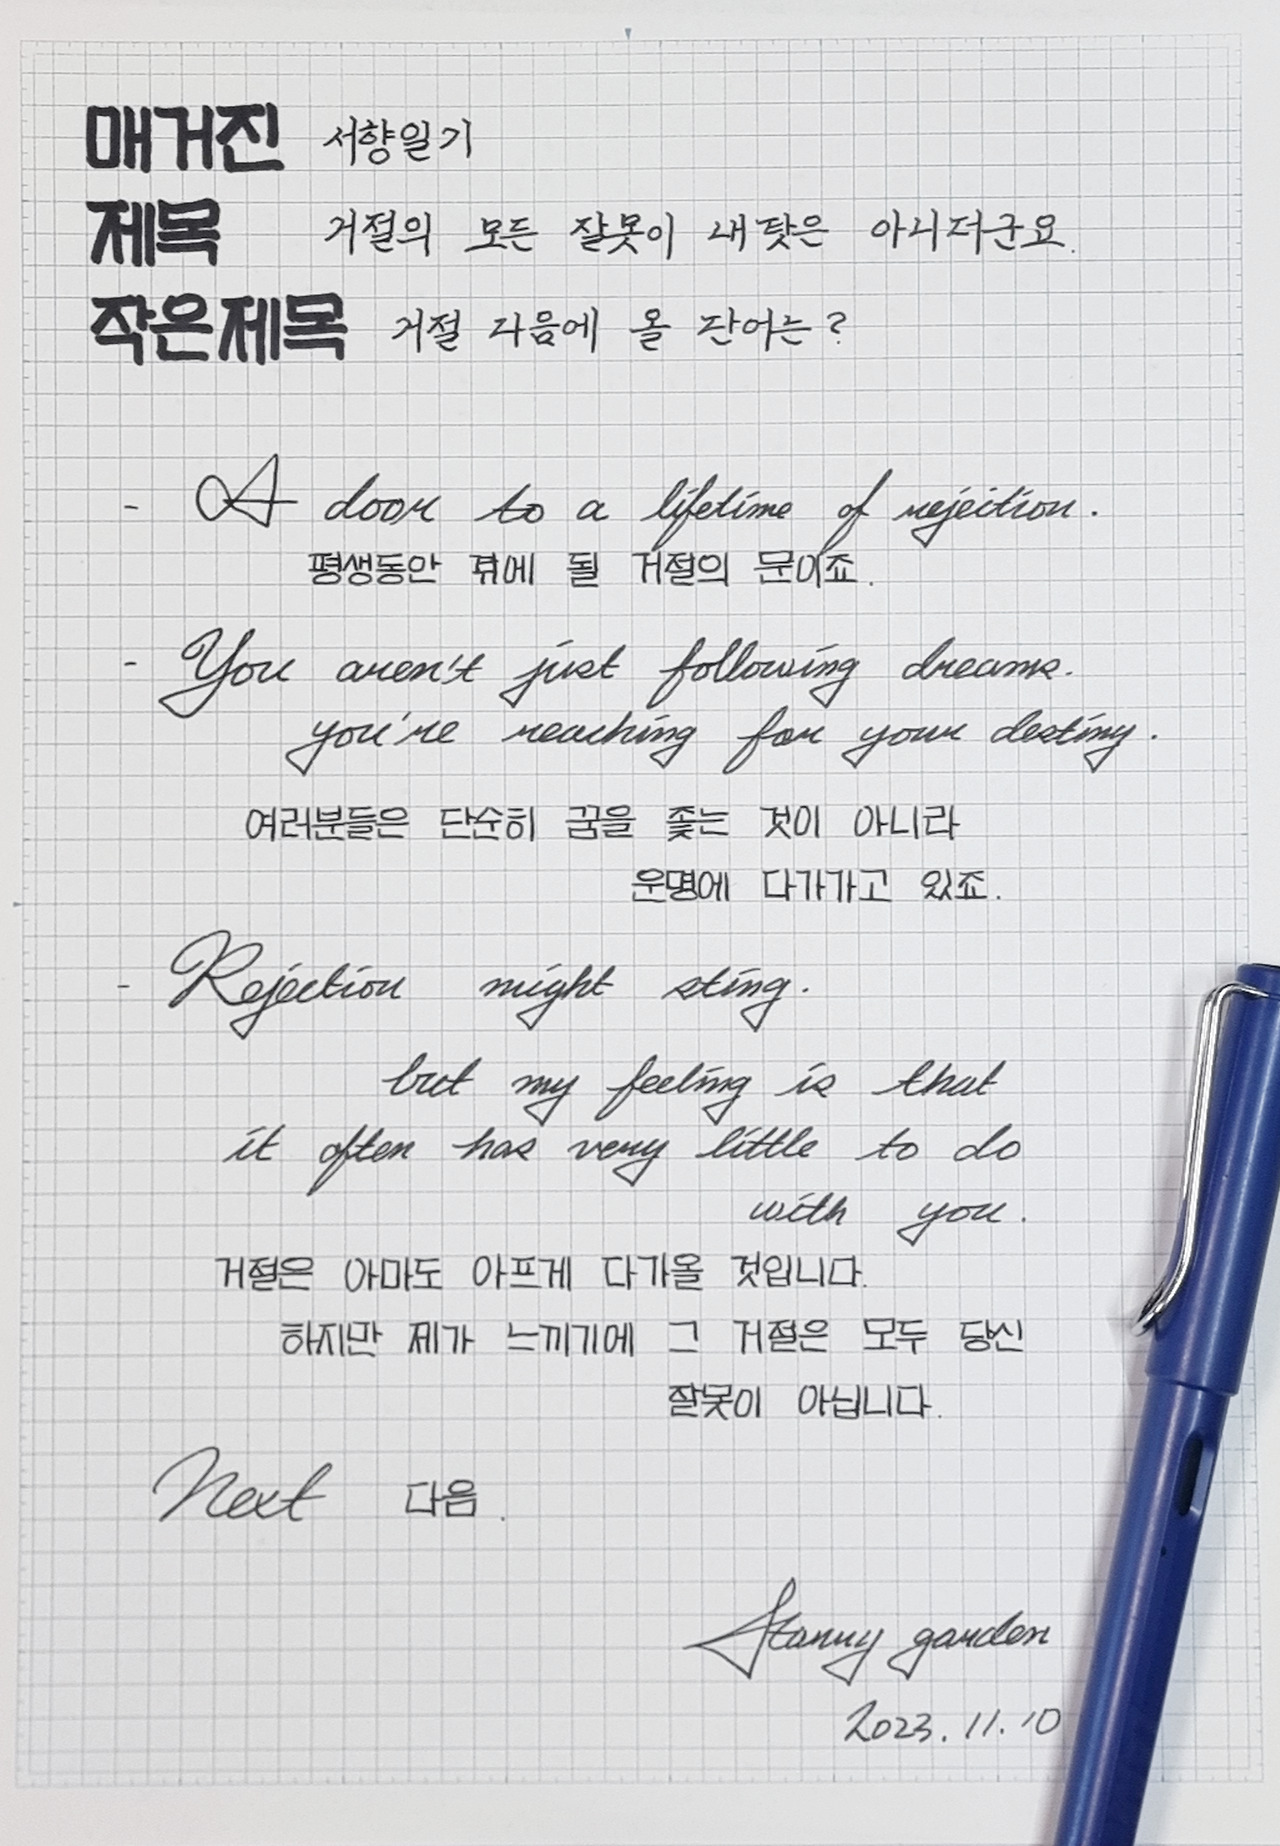 매거진 서향일기
제목 거절의 모든 잘못이 내탓은 아니더군요.
작은제목 거절 다음에 올 단어는?
- A door to a lifetime of rejection.
평생동안 겪에 될 거절의 문이죠.
- You aren't just following dreams.
you're reaching for your destiny.
여러분들은 단순히 꿈을 좇는 것이 아니라
운명에 다가가고 있죠.
- Rejection might sting.
but my feeling is that
it often has very little to do
with you.
거절은 아마도 아프게 다가올 것입니다.
하지만 제가 느끼기에 그 거절은 모두 당신
잘못이 아닙니다.
Next 다음.
garden
2023.11.10